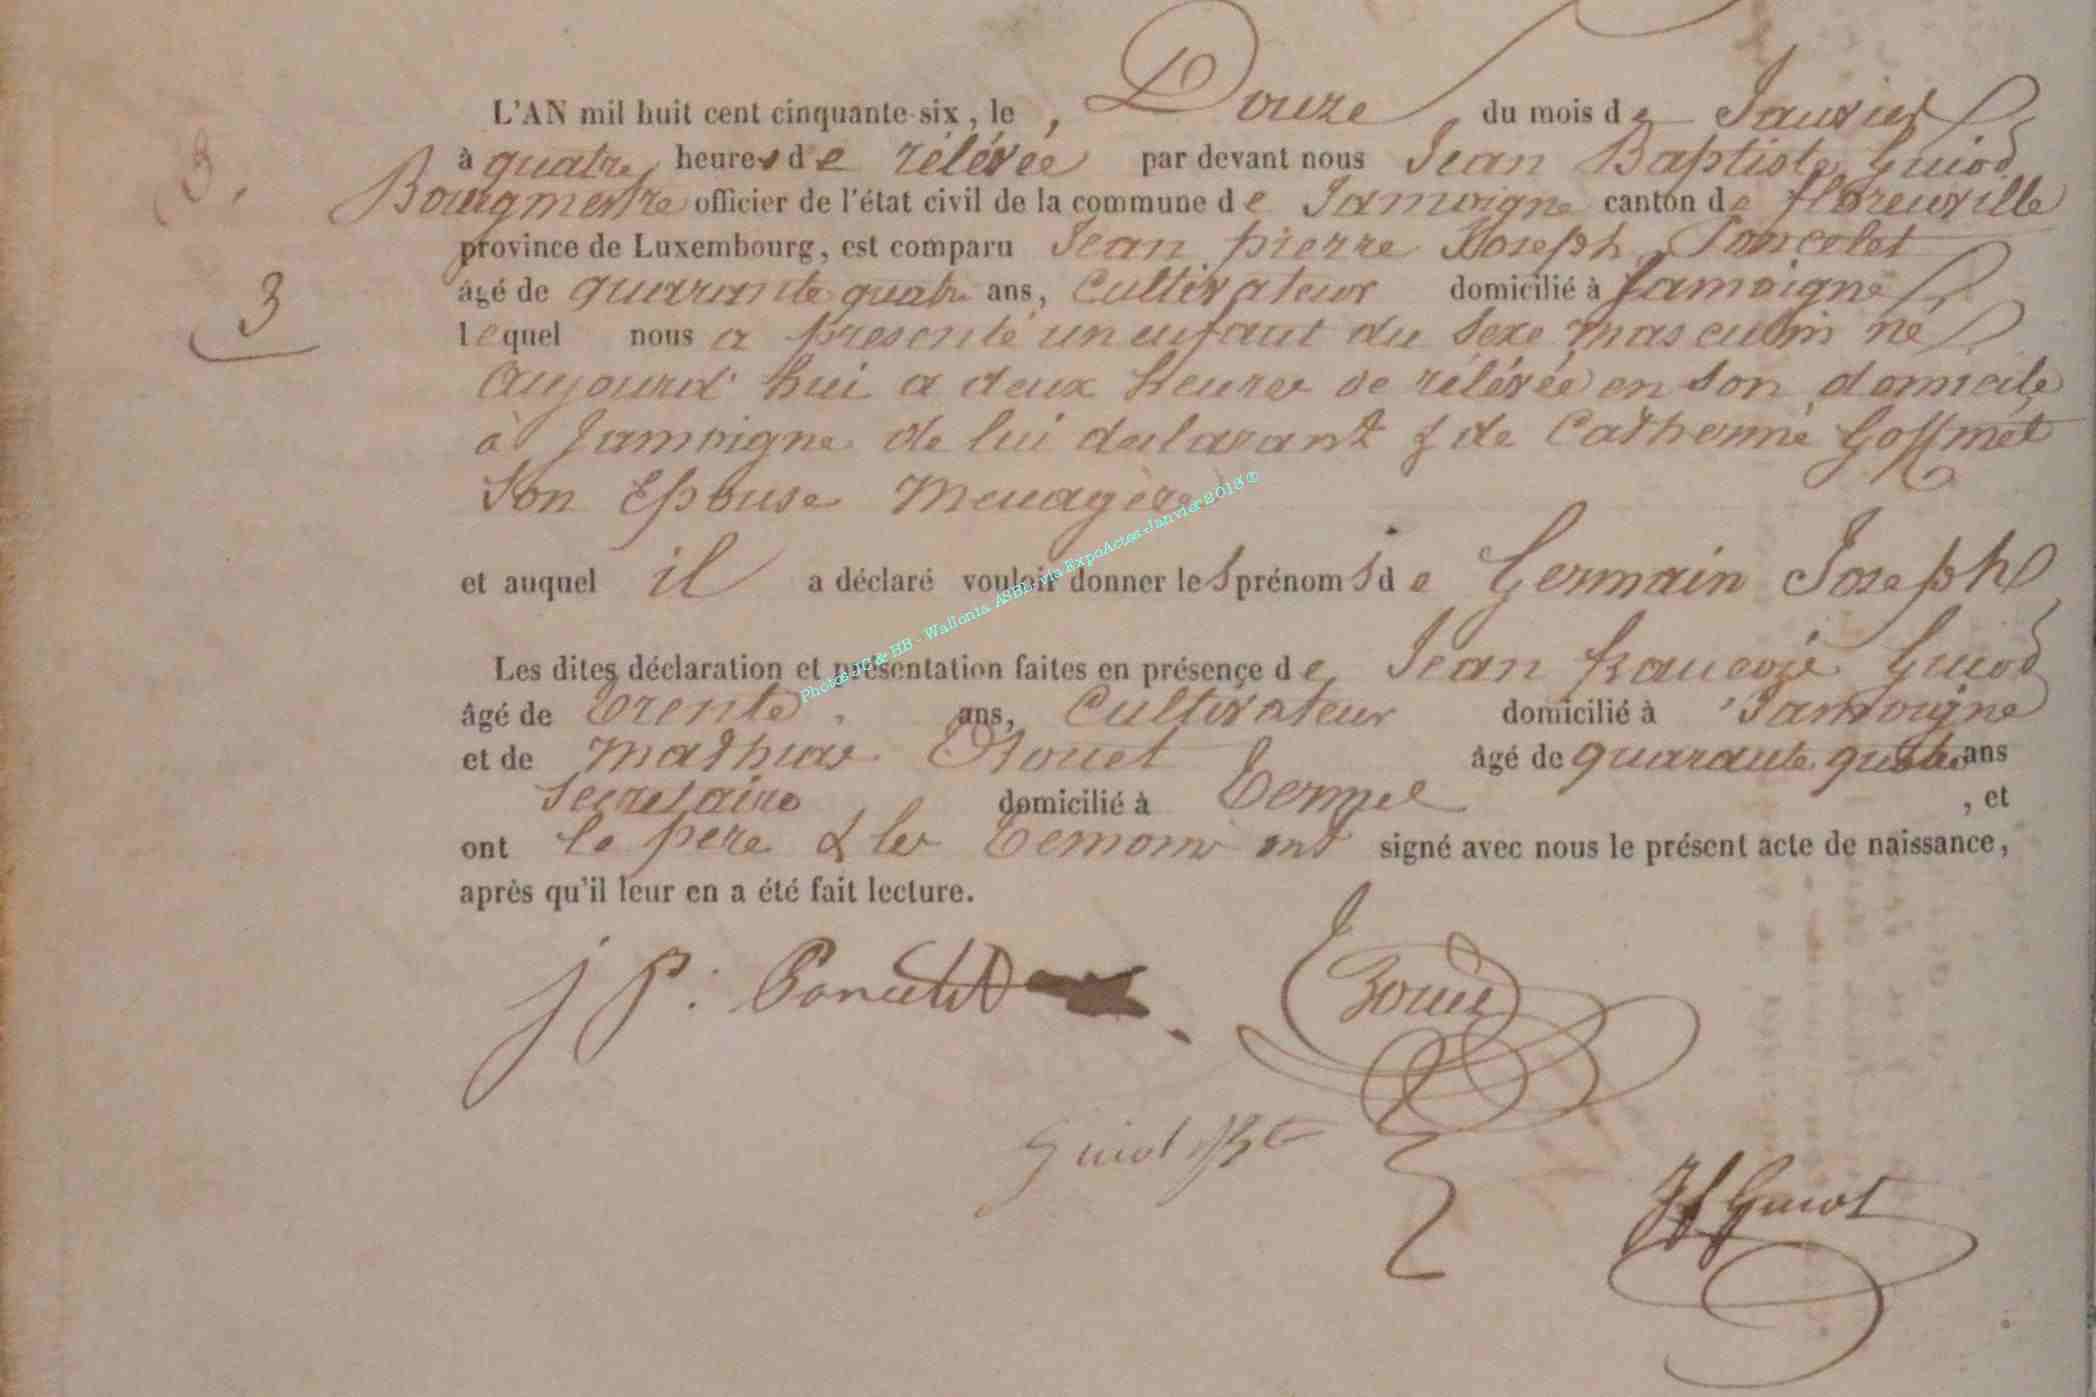 L'AN mil huit cent cinquante-six, le, Douze du mois de Janvier
3,
à quatre heures de rélévée par devant nous Jean Baptiste Guiod
Bourgmestre officier de l'état civil de la commune de Jamoigne canton de florenville
province de Luxembourg, est comparu Jean pierre Joseph Poncelet
3
âgé de quarante quatre ans, Cultivateur domicilié à Jamoigne
lequel nous a présenté un enfant du sexe masculin né
Aujourd'hui a deux heures de rélévée en son domicile
à Jamoigne de lui declarant & de Catherine Goffinet
Son Epouse Menagère
et auquel il a déclaré vouloir donner les prénoms de Germain Joseph
Les dites déclaration et présentation faites en présence de Jean francois Guiod
âgé de trente ans, Cultivateur domicilié à Jamoigne
et de Mathias Rouet âgé de quarante quatre ans
Secretaire domicilié à Termes, et
ont le père & les temoins ont signé avec nous le présent acte de naissance,
après qu'il leur en a été fait lecture.
J P. Poncelet
Guiot JBte
Jf Guiot
Photos JC & HB - Wallonia ASBL via ExpoActes-Janvier 2013 ©